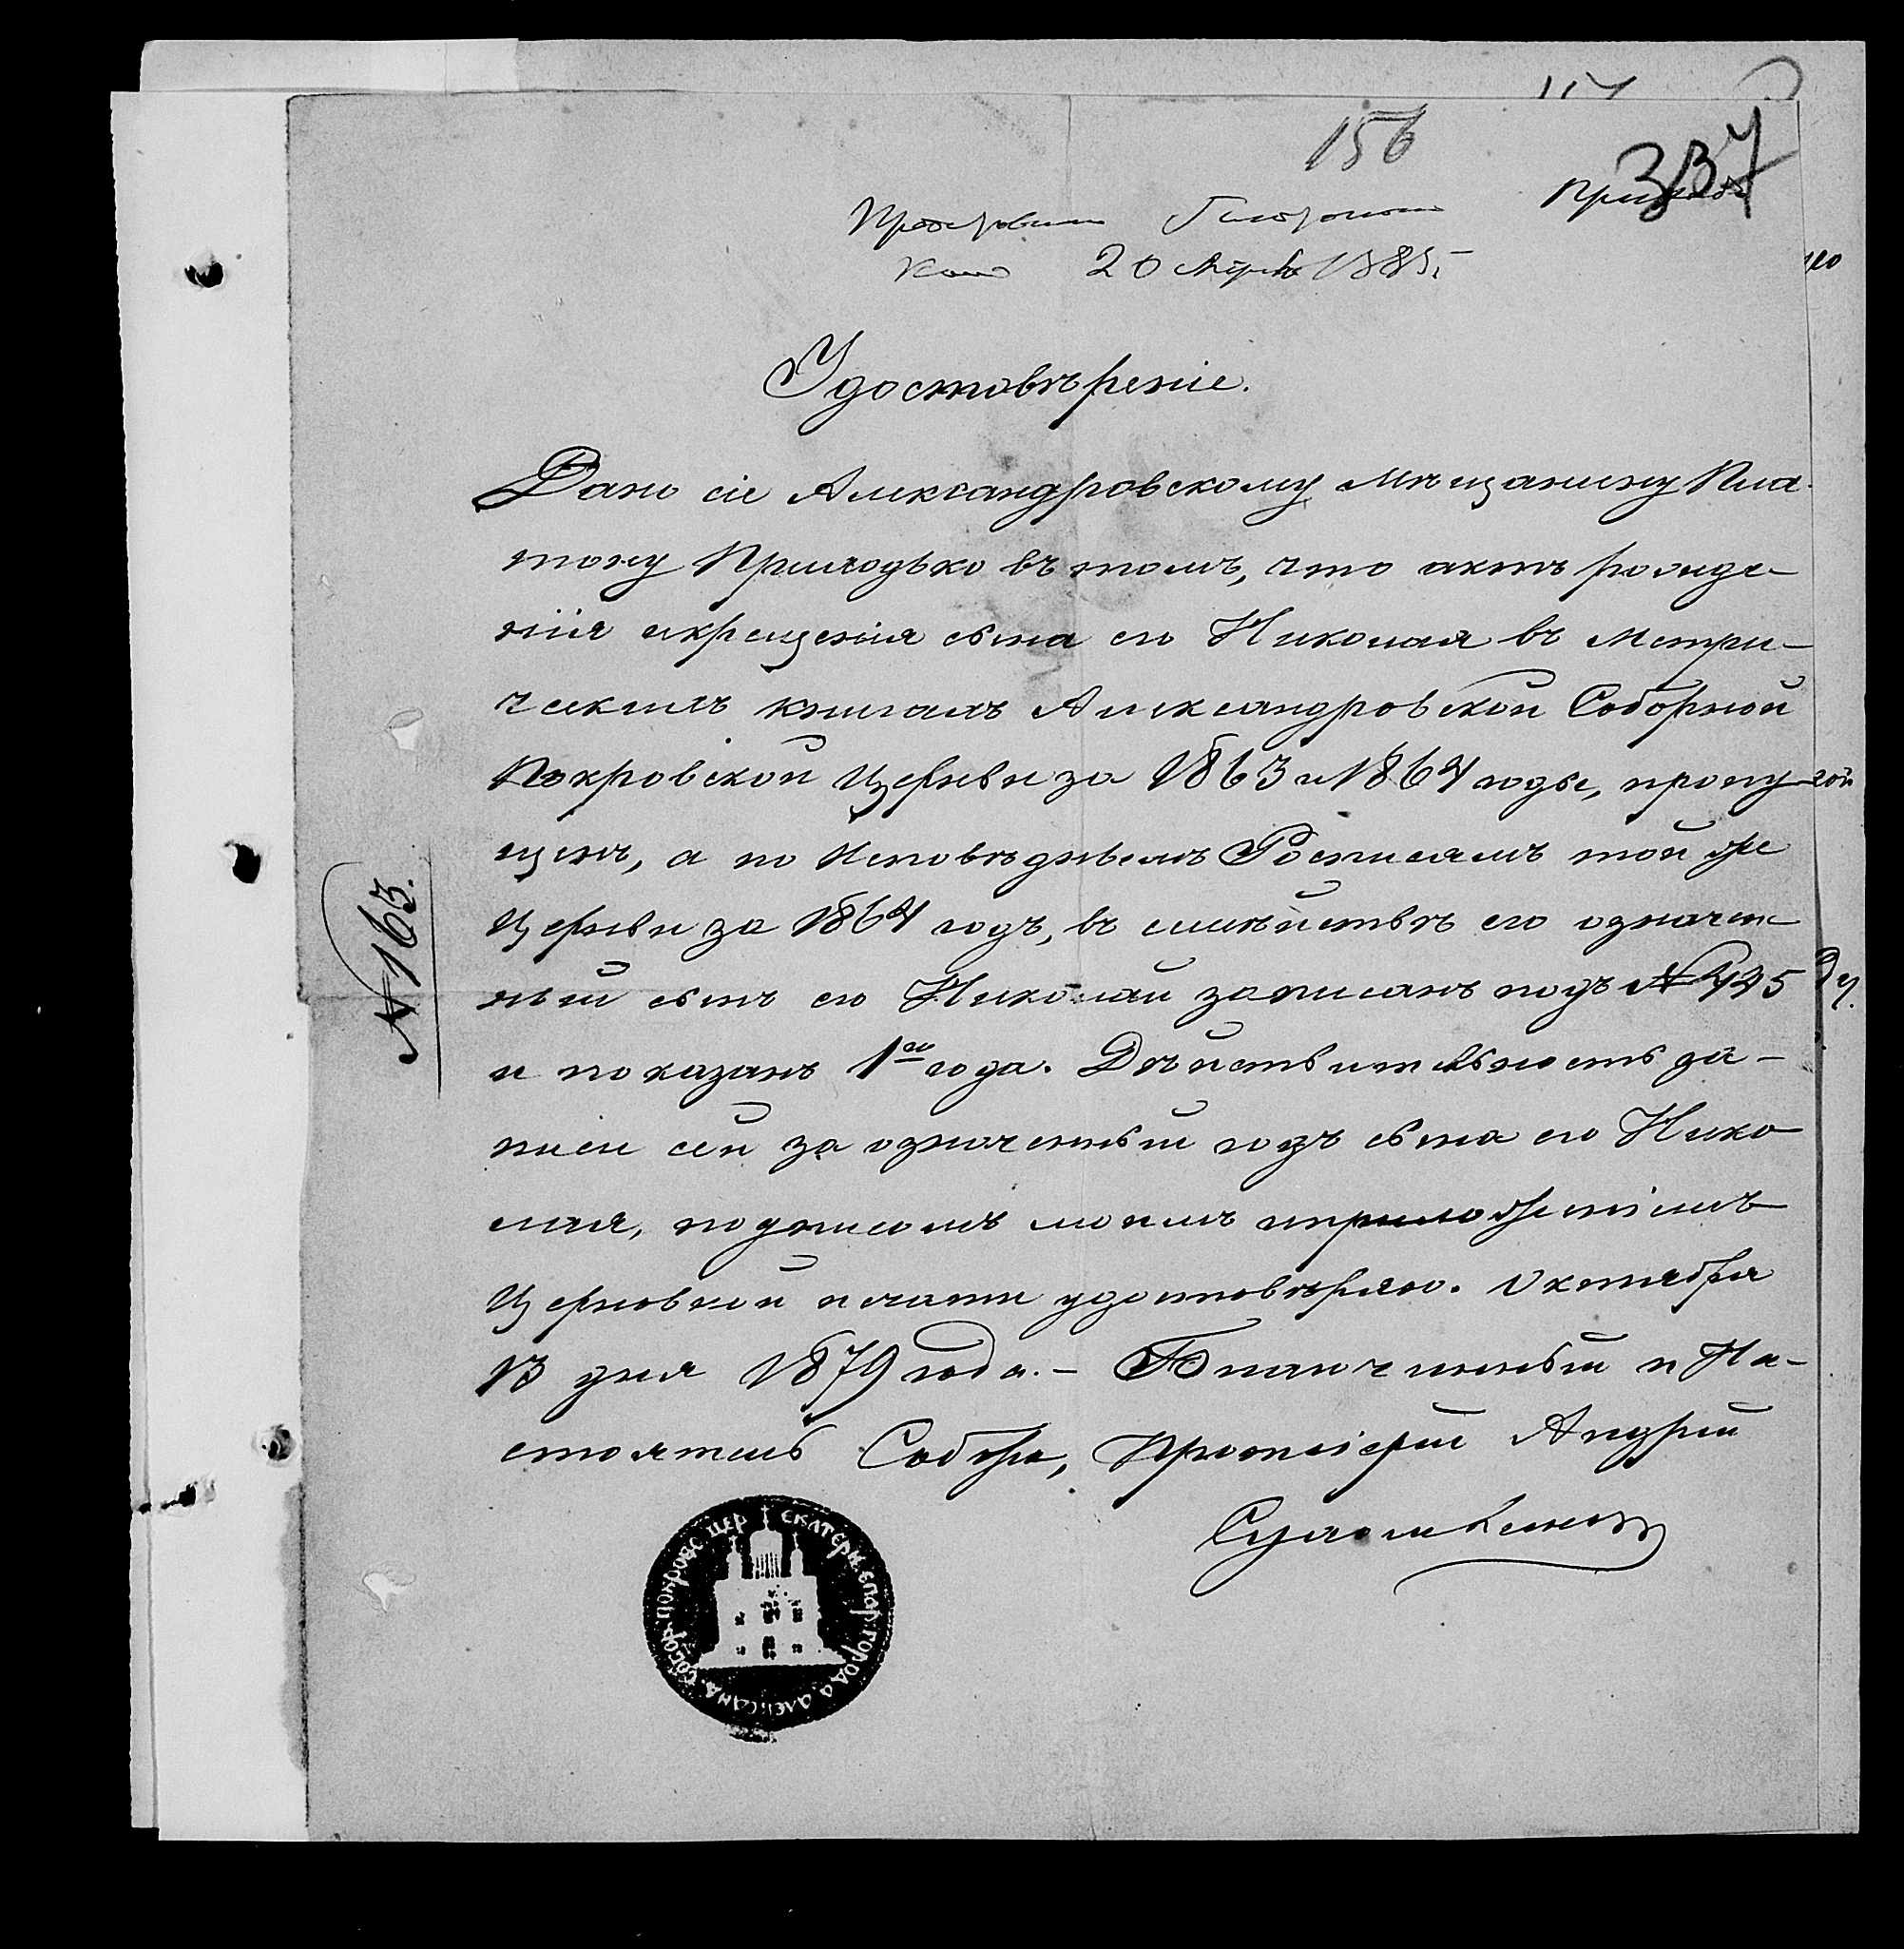 156
337
20 Апрѣля 1885 г.
Удостовѣреніе.
Дано сіе Александровскому Мѣщанину Пла-
тону Приходько въ томъ, что актъ рожде-
нія и крещенія сына его Николая въ Метри-
ческихъ книгахъ Александровской Соборной
Покровской Церкви за 1863 и 1864 годы, пропу-
щенъ, а по Исповѣднымъ Росписямъ той же
Церкви за 1864 годъ, въ семействѣ его означен-
ный сынъ его Николай записанъ подъ № 445
и показанъ 1го года. Дѣйствительность за-
писи сей за означенный годъ сына его Нико-
лая, подписомъ моимъ и приложеніемъ
Церковной печати удостовѣряю. Октября
13 дня 1879 года. – Благочинный и На-
стоятель Собора, Протоіерей Андрей
№ 163.
ЕКАТЕРИ. ЕПАР. ГОРОДА АЛЕКСАНД. СОБОР. ПОКРОВС ЦЕР